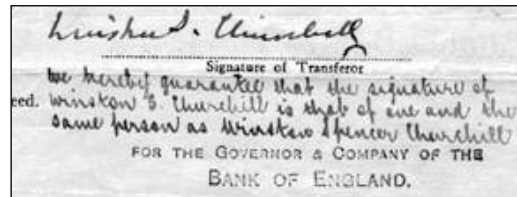 Winston S. Churchill
Signature of Transferor
We hereby guarantee that the signature of
eed. Winston S. Churchill is that of one and the
same person as Winston Spencer Churchill
FOR THE GOVERNOR & COMPANY OF THE
BANK OF ENGLAND.